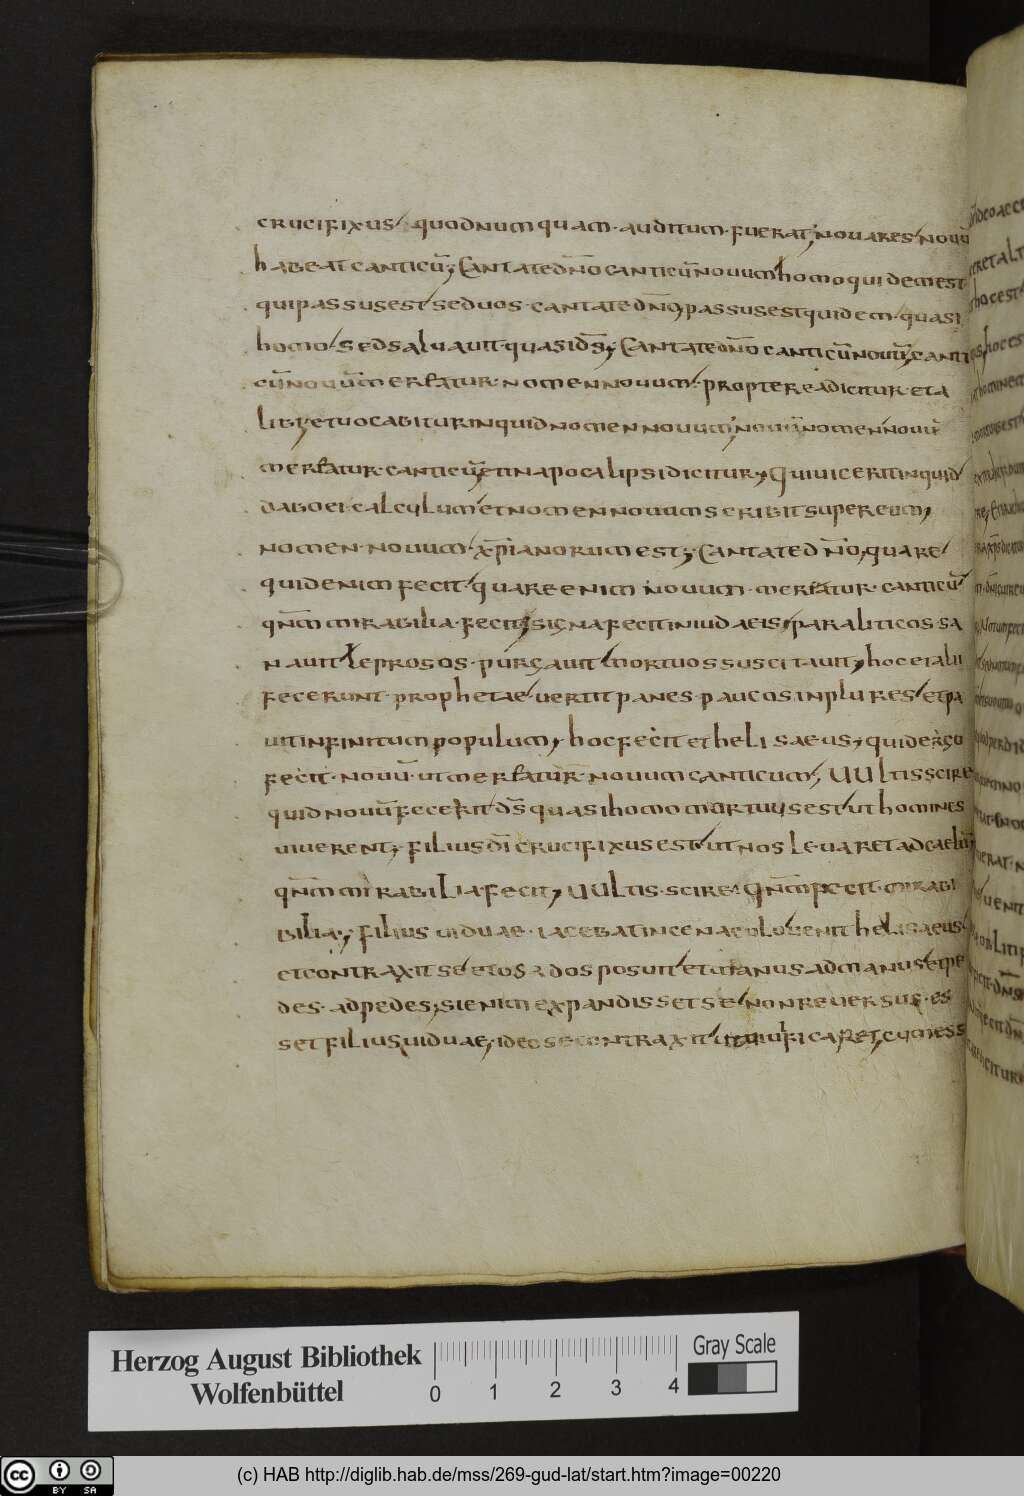 crucifixus quod numquam· auditum· fuerat; noua res nouū
habeat canticū; Cantate dn̄o canticū nouum homo quidem est·
qui passus est sed uos· cantate dn̄o, passus est quidem· quasi
homo sed saluauit· quasi ds̄; Cantate dn̄o canticū nouū, canti
cū nouū meretatur· nomen nouum· propterea dicitur· et a
libi, et uocabitur inquid nomen nouum, nouū nomen nouū
meretatur· canticū, et in apocalipsi dicitur, Qui uicerit inquid
dabo ei· calculum et nomen nouum scribit super eum,
nomen· nouum· xp̄ianorum est; Cantate dn̄o, quare
quid enim fecit· quare enim nouum· meretatur· canticū
qn̄m mirabilia· fecit, signa fecit in iudaeis, paraliticos· sa
nauit leprosos· purgauit mortuos suscitauit, hoc et alii
fecerunt· prophetae uertit panes· paucos in plures et pa
uit infinitum populum, hoc fecit et heliseus, quid ergo
fecit· nouū· ut meretatur· nouum canticum, UUltis scire
quid nouū fecerit ds̄ quasi homo mortuus est ut homines
uiuerent, filius dī crucifixus est ut nos leuaret ad caelū
qn̄m mirabilia· fecit, UUltis· scire· Qn̄m fecit· mirabi
bilia·, filius uiduae· iacebat in cenaculo uenit helisaeus·
et contraxit se et os ad os posuit et manus ad manus et pe
des· ad pedes; si enim expandisset se non reuersus· es
set filius uiduae, ideo se contraxit ut uiuificaret, cum ess
Herzog August Bibliothek
Wolfenbüttel
0 1 2 3 4
Gray Scale
cc BY SA
(c) HAB http://diglib.hab.de/mss/269-gud-lat/start.htm?image=00220